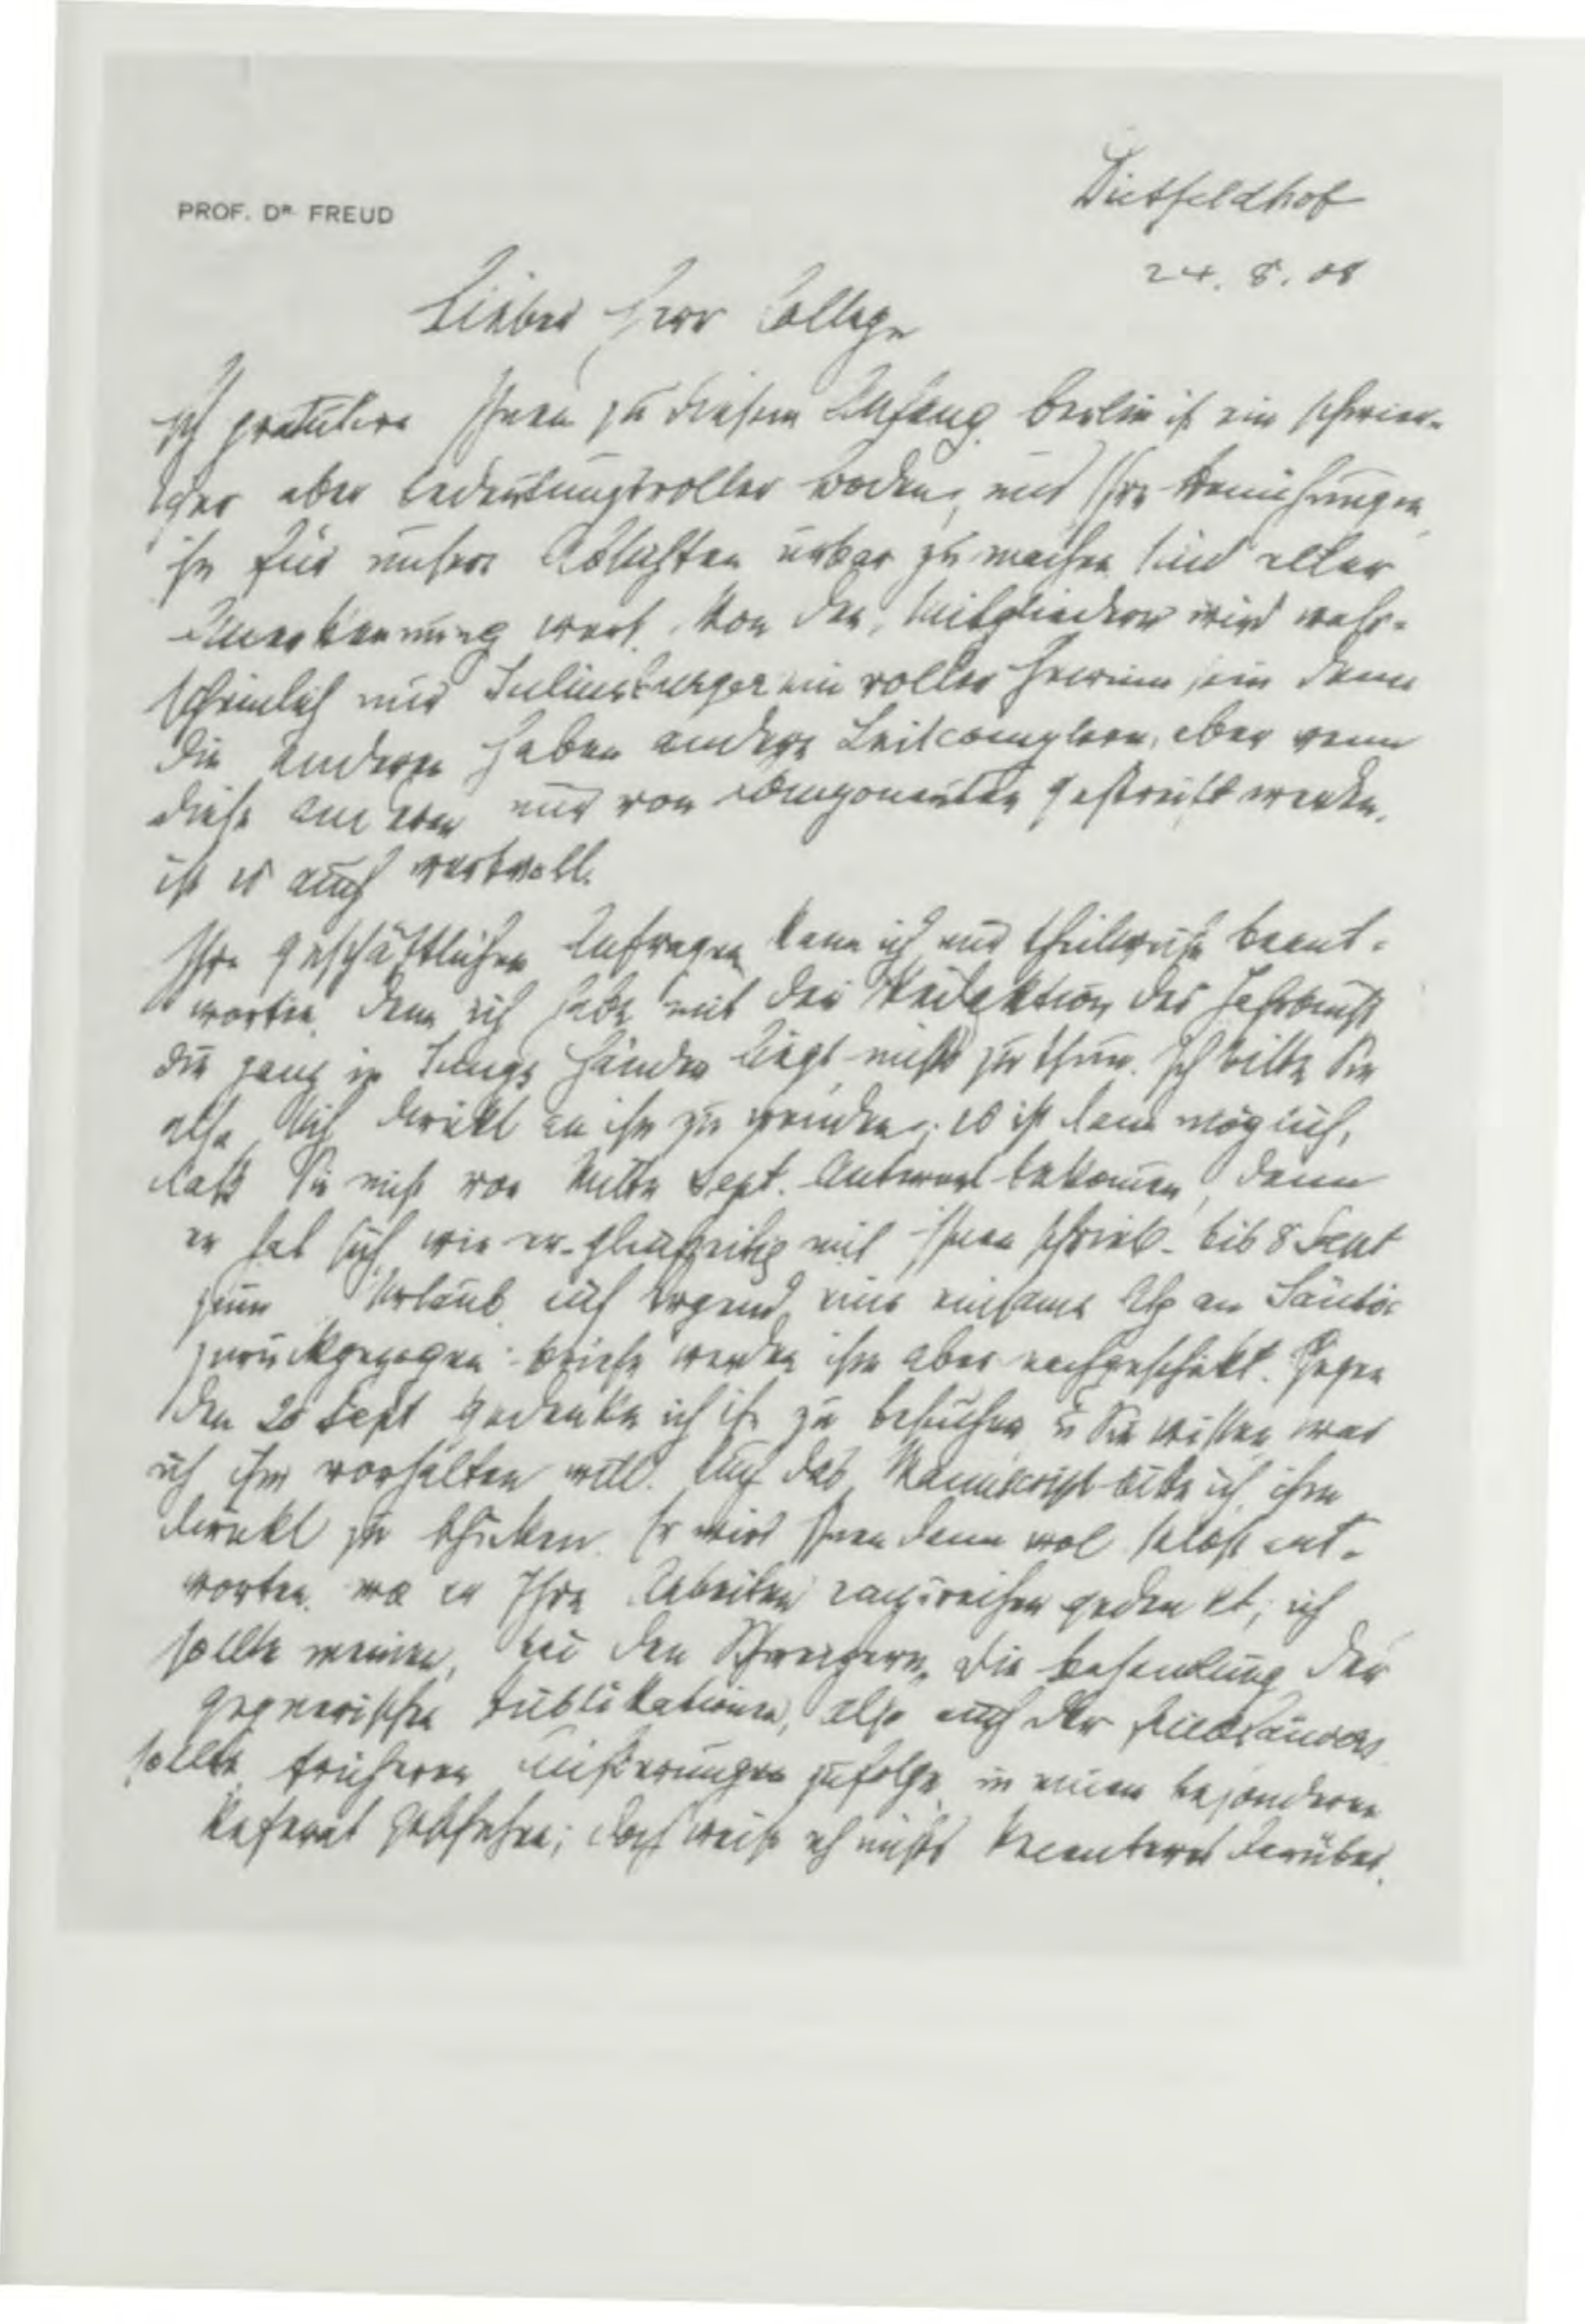 PROF. DR. FREUD
Dietfeldhof
24. 8. 08
Lieber Herr College
Ich gratulire Ihnen zu diesem Anfang. Berlin ist ein schwier-
iger aber bedeutungsvoller Boden, und Ihre Bemühungen
ihn für unsere Absichten urbar zu machen sind aller
Anerkennung wert. Von den Mitgliedern wird wahr-
scheinlich nur Juliusburger ein voller Gewinn sein denn
die anderen haben andere Leitcomplexe, aber wenn
diese anderen nur von Componenten gestreift werden,
ist es auch wertvoll.
Ihre geschäftlichen Anfragen kann ich nur theilweise beant-
worten, denn ich habe mit der Redaktion des Jahrbuchs
die ganz in Jungs Händen liegt nichts zu thun. Ich bitte Sie
also sich direkt an ihn zu wenden; es ist dann möglich,
daß Sie nicht vor Mitte Sept. Antwort bekommen, denn
er hat sich, wie er gleichzeitig mit Ihnen schrieb bis 8 Sept
zum Urlaub auf irgend eine einsame Alp am Säntis
zurückgezogen. Briefe werden ihm aber nachgeschickt. Gegen
den 20 Sept gedenke ich ihn zu besuchen u Sie wissen was
ich ihm vorhalten will. Auch das Manuscript bitte ich ihm
direkt zu schicken. Er wird Ihnen dann wol selbst ant-
worten, wo er Ihre Arbeiten einzureihen gedenkt; ich
sollte meinen, bei den Schweizern. Die Behandlung der
gegnerischen Publikationen, also auch der
sollte früheren Äußerungen zufolge in einem besonderen
Referat geschehen; doch weiß ich nichts Bekannteres darüber.